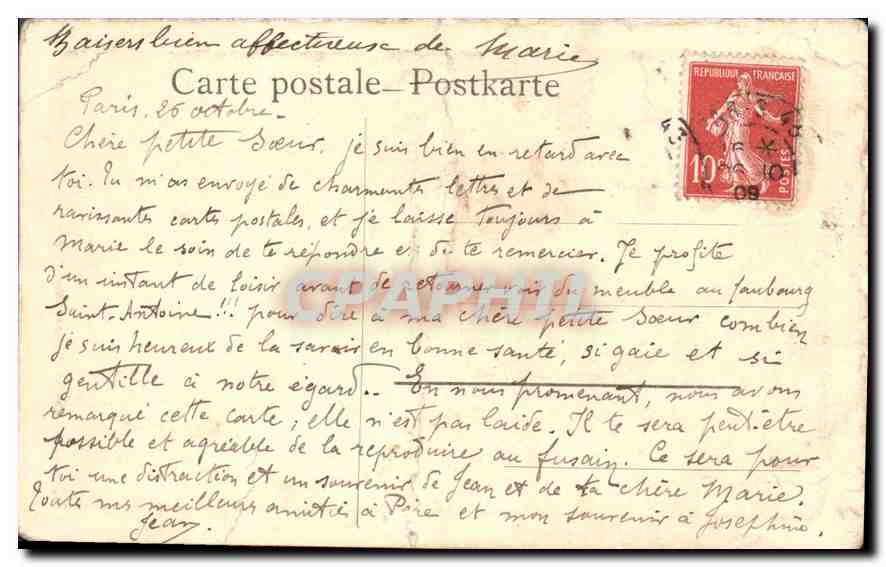 Baisers bien affectueuse de Marie
Carte postale – Postkarte
REPUBLIQUE FRANÇAISE
10c
POSTES
09
Paris, 26 octobre.
Chère petite Sœur, je suis bien en retard avec
toi. Tu m'as envoyé de charmantes lettres et de
ravissantes cartes postales, et je laisse toujours à
Marie le soin de te répondre et de te remercier. Je profite
d'un instant de loisir avant de retourner voir du meuble au faubourg
Saint-Antoine !!! pour dire à ma chère petite Sœur combien
je suis heureux de la savoir en bonne santé, si gaie et si
gentille à notre égard.. En nous promenant, nous avons
remarqué cette carte ; elle n'est pas laide. Il te sera peut-être
possible et agréable de la reproduire au fusain. Ce sera pour
toi une distraction et un souvenir de Jean et de ta chère Marie.
Toutes mes meilleures amitiés à Père et mon souvenir à Joséphine.
Jean.
CPAPHIL